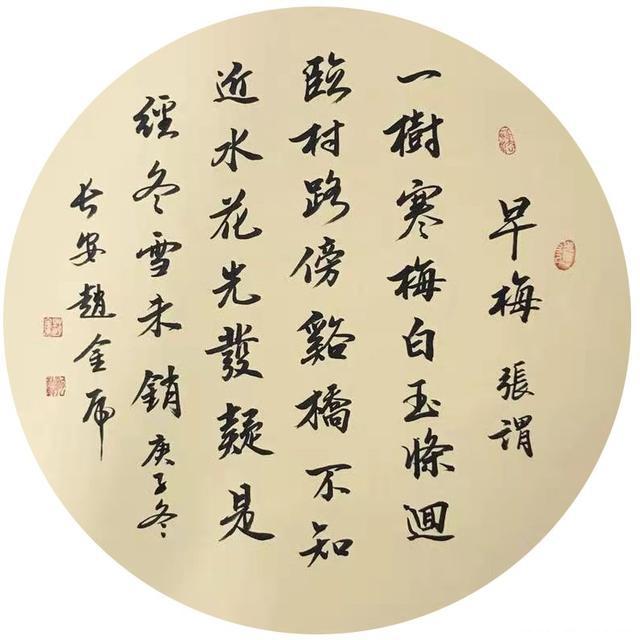 早梅 張謂
一樹寒梅白玉條迴
臨村路傍谿橋不知
近水花先發疑是
經冬雪未銷 庚子冬
长安趙金虎